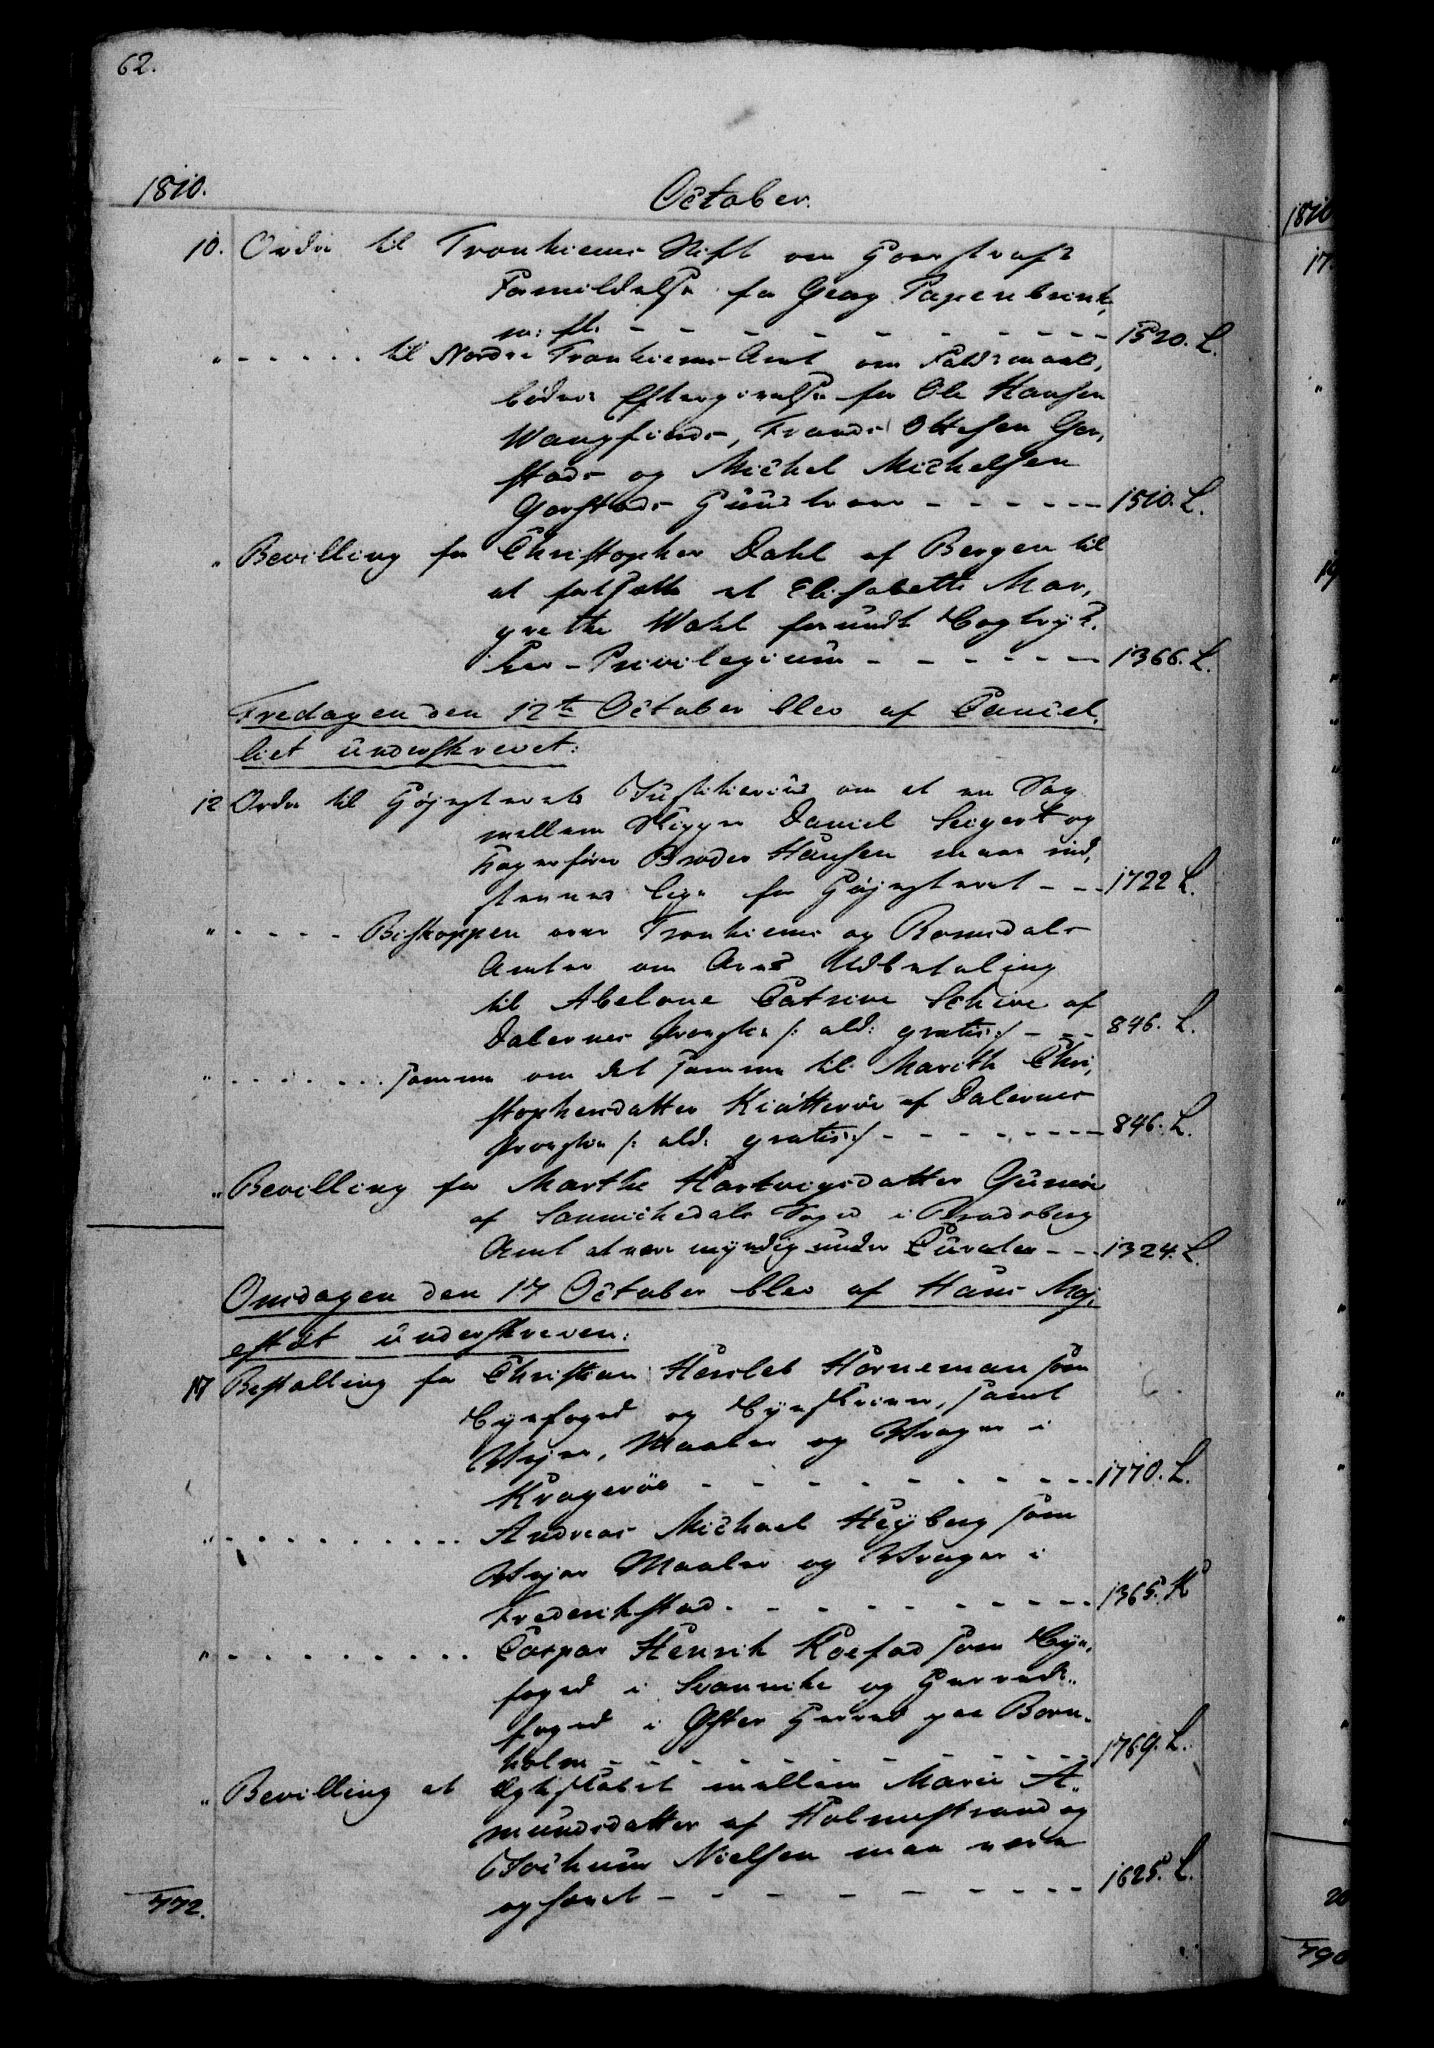 62.
1810. October.
10. Ordre til Tronhiems Stift om
Formildelse for Georg Papenbrink,
m: fl. - - - - - - - - - 1520. L.
" - - - - - til Nordre Tronhiems Amt om Faldsmaals
bøders Eftergivelse for Ole Hansen
Wangfinds, Frands Ottesen Gor,
stads og Michel Michelsen
Gorstads Qvustruer - - - - - - 1510. L.
" Bevilling for Christopher Dahl af Bergen til
at fortsætte et Elisabeth Mar,
grethe Wahl forundt Bogtryk,
ker-Privilegium - - - - - - 1366. L.
Fredagen den 12te October blev af Cancel,
liet underskrevet:
12 Ordre til Høiesterets Justitiarius om at en Sag
mellem Skipper Daniel Seigert og
Kaperfører Broder Hansen maa ind,
stevnes lige for Høiesteret - - 1722 L.
" - - - - - Biskoppen over Tronhiems og Romsdals
Amter om Arvs Udbetaling
til Abelone Catrine Schive af
Dalernes Provstie /: ald: gratis :/ - - - 846. L.
" - - - - - - samme om det samme til Marith Chri,
stophersdatter Kiätterøe af Dalernes
Provstie /: ald: gratis :/ - - - - - - - - 846. L.
" Bevilling for Marthe Hartvigsdatter
af Sannikedals Sogn i Bradsberg
Amt at være myndig under Curator - - 1324. L.
Onsdagen den 17 October blev af Hans Maj,
estæt underskreven:
17 Bestalling for Christian Hersleb Horneman som
Byefoged og Byeskriver, samt
Vejer, Maaler og Vrager i
Kragerøe - - - - - - - - - - 1770. L.
" - - - - - - - - - Andreas Michael Heyberg som
Vejer Maaler og Vrager i
Frederikstad - - - - - - - - - 1365. K
" - - - - - - - - - Caspar Henrik Koefod som Bye,
foged i Svannike og Herreds,
foged i Øster Herred paa Born,
holm - - - - - - - - - - - 1769. L.
" Bevilling at Ægteskabet mellem Marie A,
mundsdatter af Holmestrand og
Jochum Nielsen maa være
ophævet - - - - - - - - - 1625. L.
772.